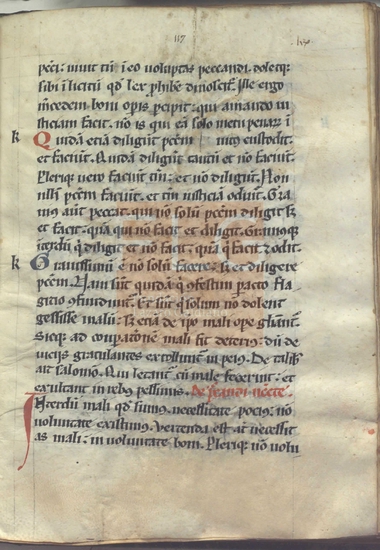 117
peccē: uiuit tn̄ ī eo uoluptas peccandi. doletq;
sibi īlicitū qd̄ lex phibe dinoscit᷑. Ille ergo
m̄cedem boni opis pcipit: qui amando iu
sticiam facit. nō is qui eā solo metu penarꝫ ī
Quidā etiā diligūt peccm̄ custodit.
et faciūt. Quidā diligūt tantū et nō faciūt.
Pleriqꝫ uero faciūt tm̄: et nō diligūt. Non
nulli peccm̄ faciūt. et tn̄ iusticiā odiūt. Gra
uius aūt peccat. qui nō solū peccm̄ diligit sꝫ
et facit. quā qui nō facit et diligit. Grauiusqꝫ
īterdū q̄ diligit et nō facit. quā q̄ facit et odit.
Grauissimū ē nō solū facere. sꝫ et diligere
peccm̄. Nam sūt quidā q̄ 9festim pacto fla
gitio 9fundūt᷑. Et sūt q̄ solum nō dolent
gessisse malū: sꝫ etiā de ipo mali ope gl̄iant᷑.
Sicqꝫ ad 9paratione mali fit deteriꝰ: dū de
uicijs gratulantes extollunt᷑ in peiꝰ. De talibꝫ
ait salomō. Qui letant᷑ cū male fecerint: et
exultant in rebꝫ pessimis.
Interdū mali qd̄ sumꝰ. necessitate pociꝰ: nō
uoluntate existimꝰ. Vertenda est aūt necessit
as mali: in uoluntate boni. Pleriqꝫ nō uolū